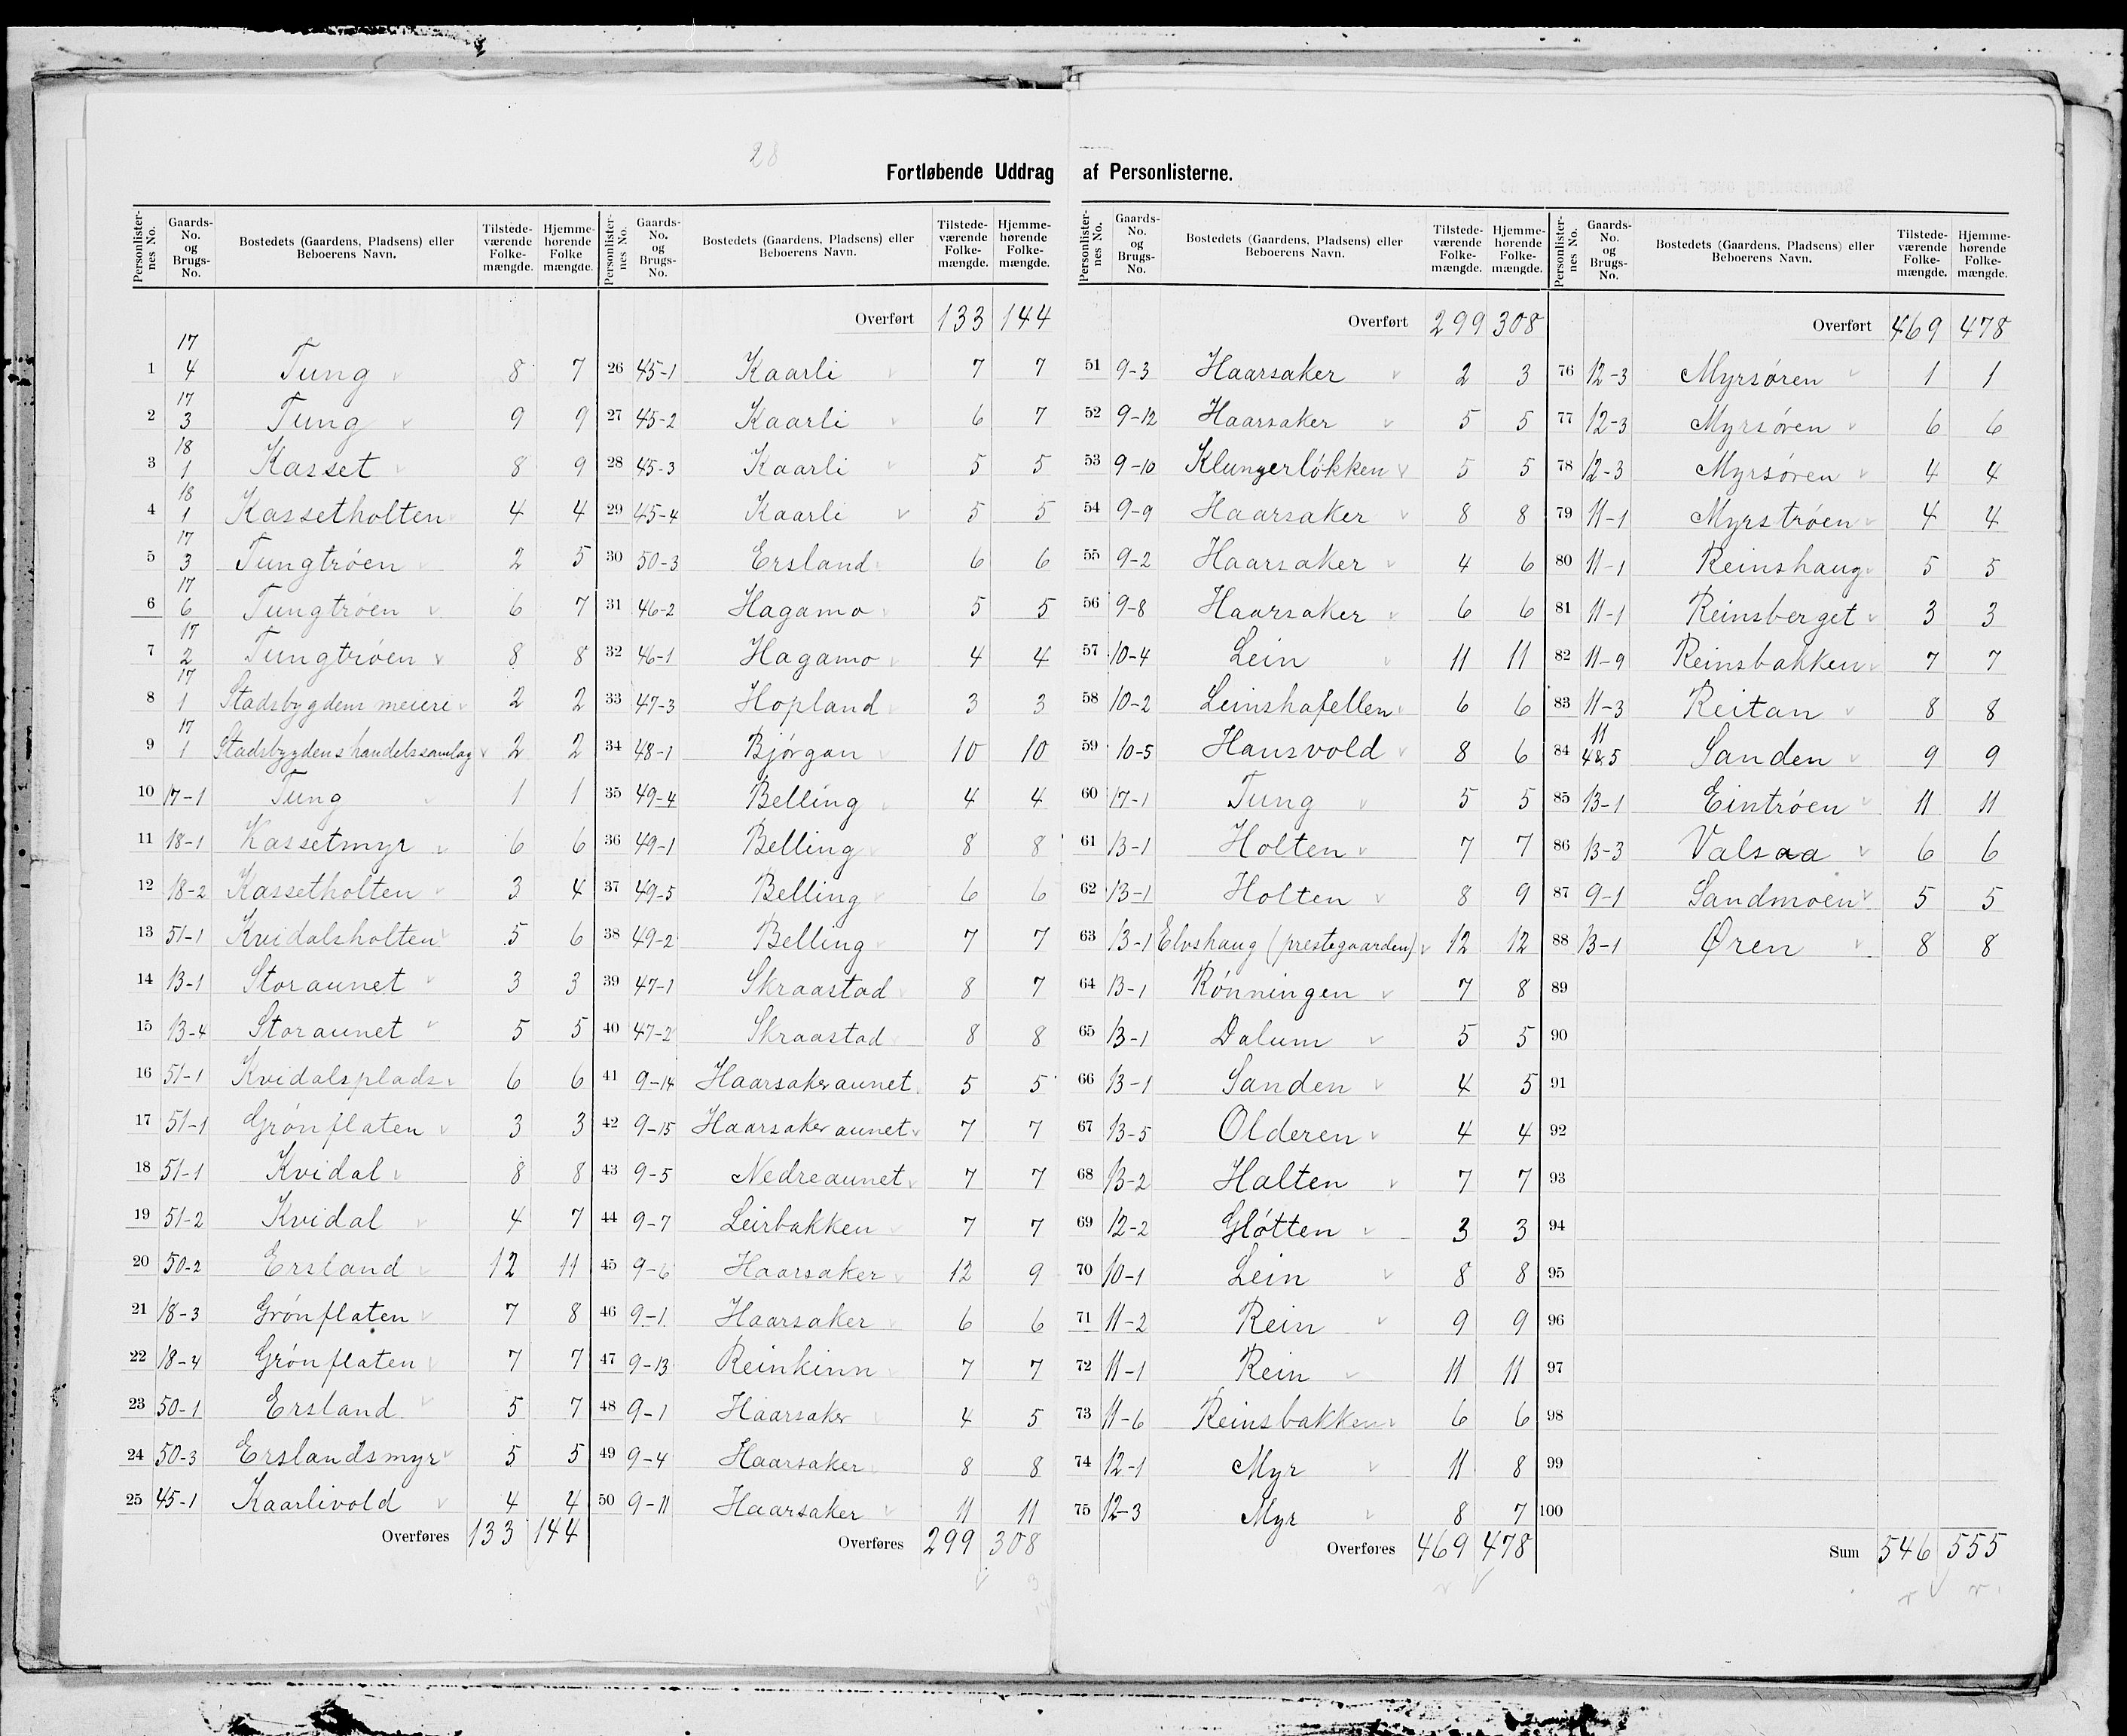 28
Fortløbende Uddrag af Personlisterne.
Personlister-nes No. | Gaards-No. og Brugs-No. | Bostedets (Gaardens, Pladsens) eller Beboerens Navn. | Tilstede-værende Folke-mængde. | Hjemme-hørende Folke mængde.
1 | 17 4 | Tung | 8 | 7
2 | 17 3 | Tung | 9 | 9
3 | 18 1 | Kasset | 8 | 9
4 | 18 1 | Kassetholten | 4 | 4
5 | 17 3 | Tungtrøen | 2 | 5
6 | 17 6 | Tungtrøen | 6 | 7
7 | 17 2 | Tungtrøen | 8 | 8
8 | 17 1 | Stadsbygdens meieri | 2 | 2
9 | 17 1 | Stadsbygdens handelssamlag | 2 | 2
10 | 17-1 | Tung | 1 | 1
11 | 18-1 | Kassetmyr | 6 | 6
12 | 18-2 | Kassetholten | 3 | 4
13 | 51-1 | Kvidalsholten | 5 | 6
14 | 13-1 | Storaunet | 3 | 3
15 | 13-4 | Storaunet | 5 | 5
16 | 51-1 | Kvidalsplads | 6 | 6
17 | 51-1 | Grønflaten | 3 | 3
18 | 51-1 | Kvidal | 8 | 8
19 | 51-2 | Kvidal | 4 | 7
20 | 50-2 | Ersland | 12 | 11
21 | 18-3 | Grønflaten | 7 | 8
22 | 18-4 | Grønflaten | 7 | 7
23 | 50-1 | Ersland | 5 | 7
24 | 50-3 | Erslandsmyr | 5 | 5
25 | 45-1 | Kaarlivold | 4 | 4
Overføres 133 144
Personlister-nes No. | Gaards-No. og Brugs-No. | Bostedets (Gaardens, Pladsens) eller Beboerens Navn. | Tilstede-værende Folke-mængde. | Hjemme-hørende Folke-mængde.
Overført 133 144
26 | 45-1 | Kaarli | 7 | 7
27 | 45-2 | Kaarli | 6 | 7
28 | 45-3 | Kaarli | 5 | 5
29 | 45-4 | Kaarli | 5 | 5
30 | 50-3 | Ersland | 6 | 6
31 | 46-2 | Hagamo | 5 | 5
32 | 46-1 | Hagamo | 4 | 4
33 | 47-3 | Hopland | 3 | 3
34 | 48-1 | Bjørgan | 10 | 10
35 | 49-4 | Belling | 4 | 4
36 | 49-1 | Belling | 8 | 8
37 | 49-5 | Belling | 6 | 6
38 | 49-2 | Belling | 7 | 7
39 | 47-1 | Skraastad | 8 | 7
40 | 47-2 | Skraastad | 8 | 8
41 | 9-14 | Haarsakeraunet | 5 | 5
42 | 9-15 | Haarsakeraunet | 7 | 7
43 | 9-5 | Nedreaunet | 7 | 7
44 | 9-7 | Leirbakken | 7 | 7
45 | 9-6 | Haarsaker | 12 | 9
46 | 9-1 | Haarsaker | 6 | 6
47 | 9-13 | Reinkinn | 7 | 7
48 | 9-1 | Haarsaker | 4 | 5
49 | 9-4 | Haarsaker | 8 | 8
50 | 9-11 | Haarsaker | 11 | 11
Overføres 299 308
Personlister-nes No. | Gaards-No. og Brugs-No. | Bostedets (Gaardens, Pladsens) eller Beboerens Navn. | Tilstede-værende Folke-mængde. | Hjemme-hørende Folke-mængde.
Overført 299 308
51 | 9-3 | Haarsaker | 2 | 3
52 | 9-12 | Haarsaker | 5 | 5
53 | 9-10 | Klungerløkken | 5 | 5
54 | 9-9 | Haarsaker | 8 | 8
55 | 9-2 | Haarsaker | 4 | 6
56 | 9-8 | Haarsaker | 6 | 6
57 | 10-4 | Lein | 11 | 11
58 | 10-2 | Leinshafellen | 6 | 6
59 | 10-5 | Hansvold | 8 | 6
60 | 17-1 | Tung | 5 | 5
61 | 13-1 | Holten | 7 | 7
62 | 13-1 | Holten | 8 | 9
63 | 13-1 | Elvshaug (prestegaarden) | 12 | 12
64 | 13-1 | Rønningen | 7 | 8
65 | 13-1 | Dalum | 5 | 5
66 | 13-1 | Sanden | 4 | 5
67 | 13-5 | Olderen | 4 | 4
68 | 13-2 | Halten | 7 | 7
69 | 12-2 | Gløtten | 3 | 3
70 | 10-1 | Lein | 8 | 8
71 | 11-2 | Rein | 9 | 9
72 | 11-1 | Rein | 11 | 11
73 | 11-6 | Reinsbakken | 6 | 6
74 | 12-1 | Myr | 11 | 8
75 | 12-3 | Myr | 8 | 7
Overføres 469 478
Personlister-nes No. | Gaards-No. og Brugs-No. | Bostedets (Gaardens, Pladsens) eller Beboerens Navn. | Tilstede-værende Folke-mængde. | Hjemme-hørende Folke-mængde.
Overført 469 478
76 | 12-3 | Myrsøren | 1 | 1
77 | 12-3 | Myrsøren | 6 | 6
78 | 12-3 | Myrsøren | 4 | 4
79 | 11-1 | Myrstrøen | 4 | 4
80 | 11-1 | Reinshaug | 5 | 5
81 | 11-1 | Reinsberget | 3 | 3
82 | 11-9 | Reinsbakken | 7 | 7
83 | 11-3 | Reitan | 8 | 8
84 | 11 4&5 | Sanden | 9 | 9
85 | 13-1 | Eintrøen | 11 | 11
86 | 13-3 | Valsaa | 6 | 6
87 | 9-1 | Sandmoen | 5 | 5
88 | 13-1 | Øren | 8 | 8
89
90
91
92
93
94
95
96
97
98
99
100
Sum 546 555